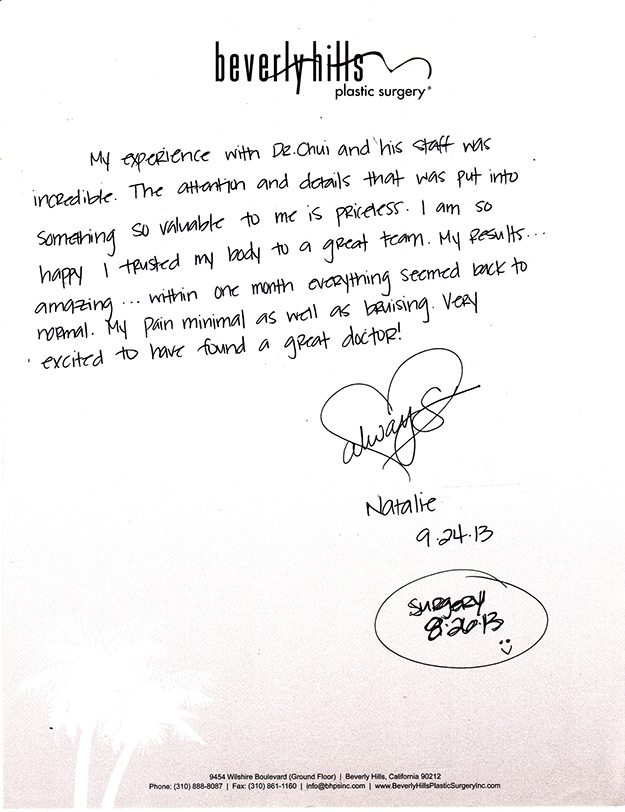 beverly hills
plastic surgery®
My experience with Dr. Chui and his staff was
incredible. The attention and details that was put into
something so valuable to me is priceless. I am so
happy I trusted my body to a great team. My Results...
amazing... within one month everything seemed back to
normal. My pain minimal as well as bruising. Very
excited to have found a great doctor!
always
Natalie
9.24.13
surgery
8.26.13
9454 Wilshire Boulevard (Ground Floor) | Beverly Hills, California 90212
Phone: (310) 888-8087 | Fax: (310) 861-1160 | info@bhpsinc.com | www.BeverlyHillsPlasticSurgeryInc.com